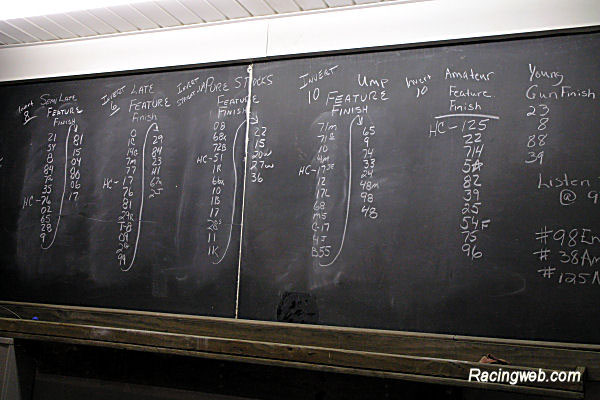 Invert
8
Semi Late
FEATURE
FINISH
21
54
8
84
76
35
HC-76
02
65
28
9
81
15
04
80
06
17
INVERT
6
LATE
FEATURE
FINISH
0
1C
14B
7m
77
HC-17
76
81
29R
T-B
09
26
99
29
84
23
41
67A
25
INVERT
PURE STOCKS
FEATURE
FINISH
08
68x
72B
HC-51
1R
66x
10
1B
17
28S
11
1K
22
15
20w
27w
36
INVERT
10
Ump
FEATURE
FINISH
71m
10
4m
HC-17
12
17c
68
m5
C-17
4J
B55
65
9
74
33
24
48m
98
48
Invert
10
Amateur
Feature
Finish
HC-125
22
714
5*
82
39
25
54F
75
96
Young
Gun Finish
23
8
88
39
Listen
@ 9
#98En
#38Am
#125
Racingweb.com